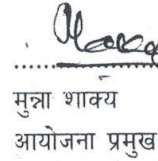 मुन्ना शाक्य
आयोजना प्रमुख